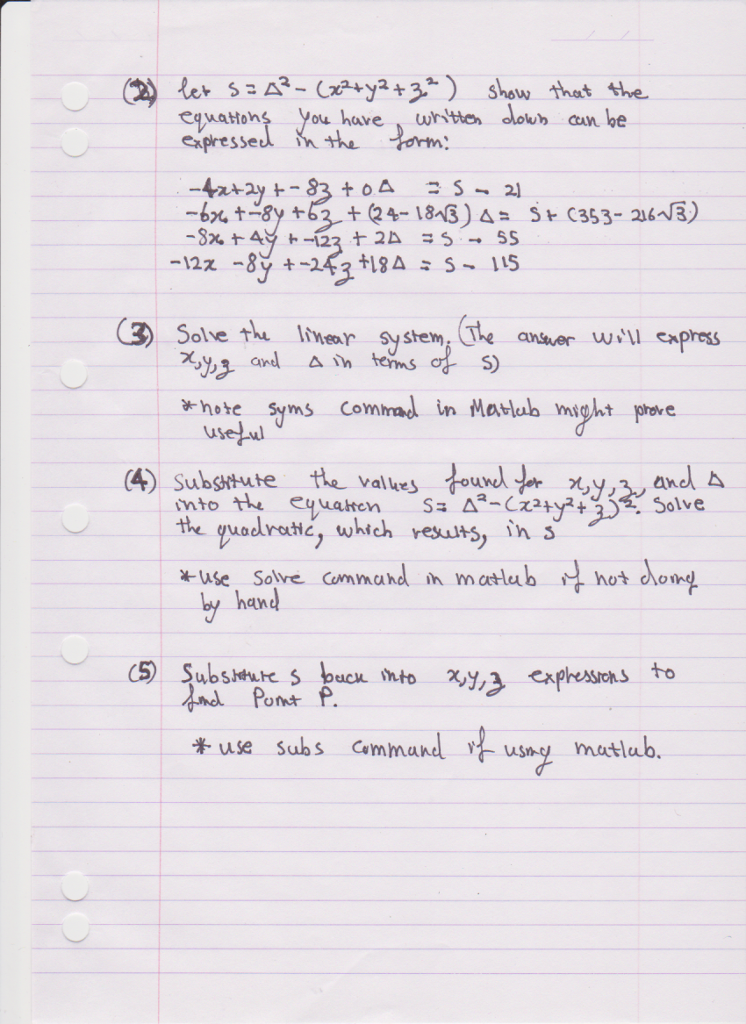 (2) let S = Δ² - (x²+y²+z²) show that the
equations you have written down can be
expressed in the form:
-4x+2y+-8z+0Δ = S - 21
-6x+-8y+6z+(24-18√3)Δ = S+(353-216√3)
-8x+4y+-12z+2Δ = S - 55
-12x-8y+-24z+18Δ = S - 115
(3) Solve the linear system. (The answer will express
x,y,z and Δ in terms of S)
*note syms command in Matlab might prove
useful
(4) Substitute the values found for x,y,z, and Δ
into the equation S= Δ²-(x²+y²+z)². Solve
the quadratic, which results, in s
*use solve command in matlab if not doing
by hand
(5) Substitute s back into x,y,z expressions to
find Point P.
*use subs command if using matlab.